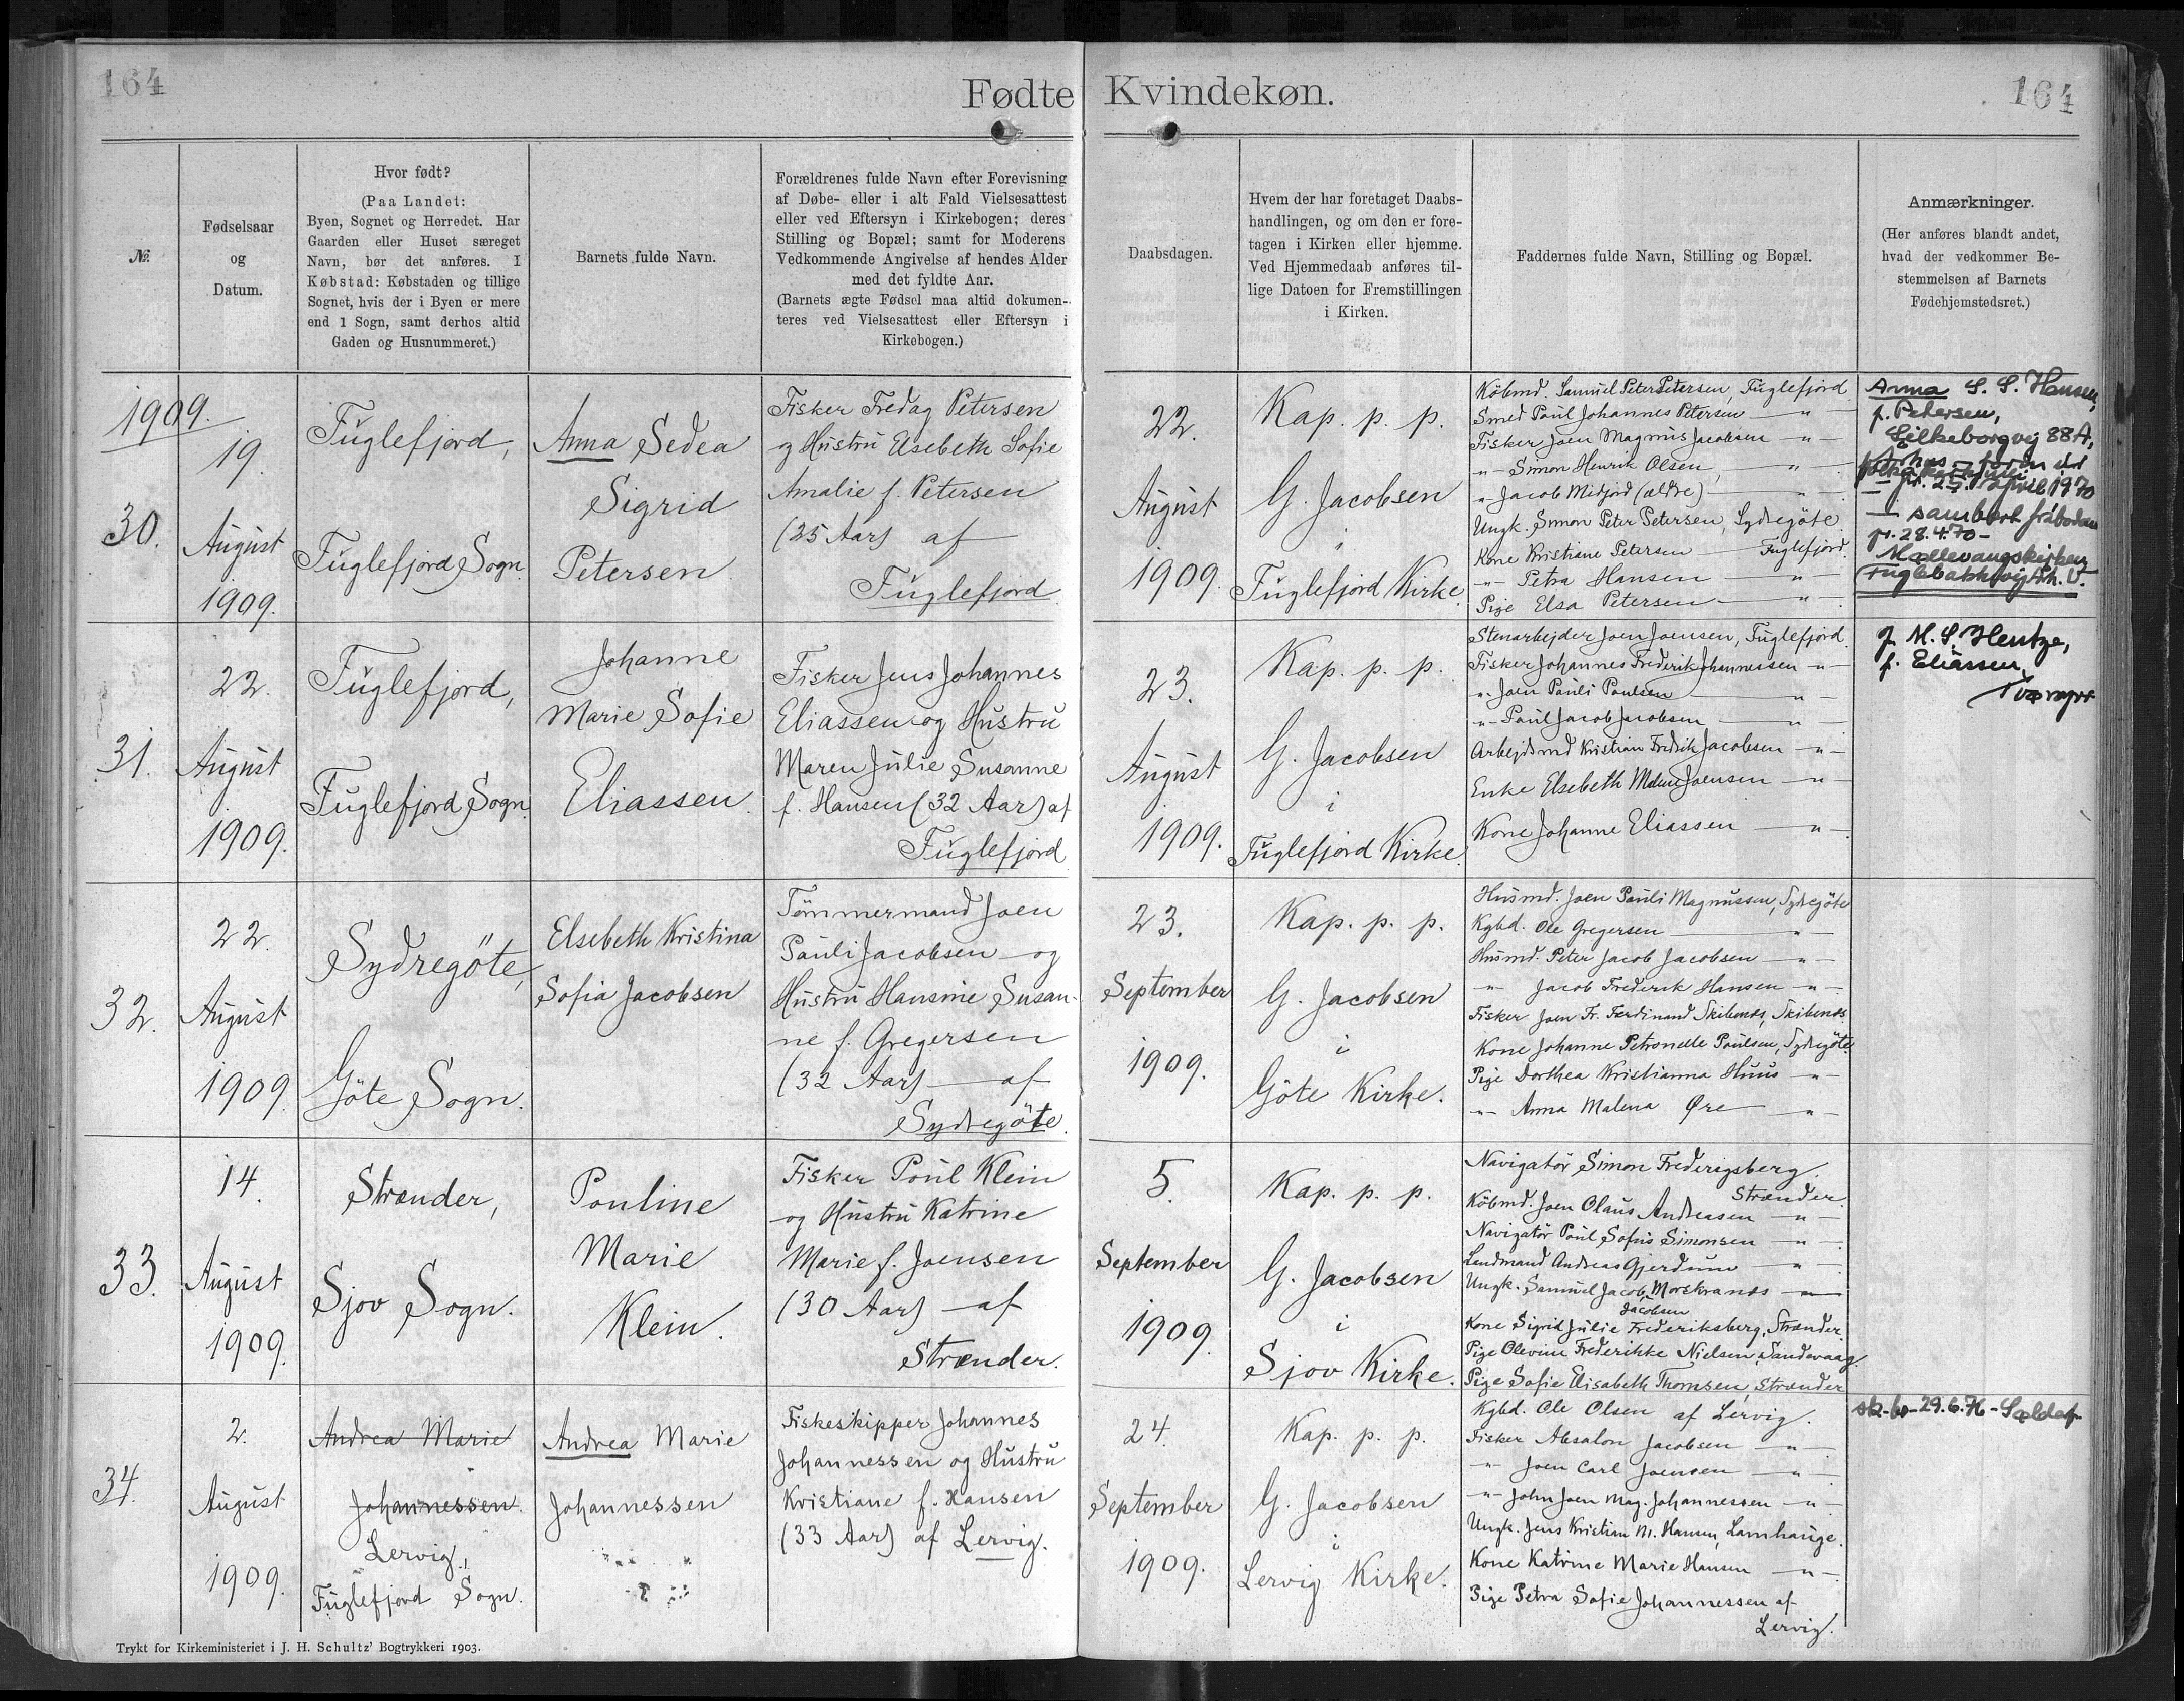 164
Fødte Kvindekøn.
164
№.
Fødselsaar
og
Datum.
Hvor født?
(Paa Landet:
Byen, Sognet og Herredet. Har
Gaarden eller Huset særeget
Navn, bør det anføres. I
Købstad: Købstaden og tillige
Sognet, hvis der i Byen er mere
end 1 Sogn, samt derhos altid
Gaden og Husnummeret.)
Barnets fulde Navn.
Forældrenes fulde Navn efter Forevisning
af Døbe- eller i alt Fald Vielsesattest
eller ved Eftersyn i Kirkebogen; deres
Stilling og Bopæl; samt for Moderens
Vedkommende Angivelse af hendes Alder
med det fyldte Aar.
(Barnets ægte Fødsel maa altid dokumen-
teres ved Vielsesattest eller Eftersyn i
Kirkebogen.)
Daabsdagen.
Hvem der har foretaget Daabs-
handlingen, og om den er fore-
tagen i Kirken eller hjemme.
Ved Hjemmedaab anføres til-
lige Datoen for Fremstillingen
i Kirken.
Faddernes fulde Navn, Stilling og Bopæl.
Anmærkninger.
(Her anføres blandt andet,
hvad der vedkommer Be-
stemmelsen af Barnets
Fødehjemstedsret.)
1909.
30.
19.
August
1909.
Fuglefjord,
Fuglefjord Sogn.
Anna Sedea
Sigrid
Petersen
Fisker Fredag Petersen
og Hustru Elsebeth Sofie
Amalie f. Petersen
(25 Aar) af
Fuglefjord
22.
August
1909.
Kap. p. p.
G. Jacobsen
i
Fuglefjord Kirke.
Købmd. Samuel Peter Petersen, Fuglefjord
Smed Poul Johannes Petersen — " —
Fisker Joen Magnus Jacobsen — " —
" — Simon Henrik Olsen, — " —
" Jacob Midjord (ældre) — " —
Ungk. Simon Peter Petersen, Sydregöte
Kone Kristiane Petersen — Fuglefjord.
" — Petra Hansen — " —
Pige Elsa Petersen — " —
Anna S. S. Hansen,
f. Petersen,
Silkeborgvej 88A,
28.4.70 —
31.
22.
August
1909.
Fuglefjord,
Fuglefjord Sogn.
Johanne
Marie Sofie
Eliassen.
Fisker Jens Johannes
Eliassen og Hustru
Maren Julie Susanne
f. Hansen (32 Aar) af
Fuglefjord
23.
August
1909.
Kap. p. p.
G. Jacobsen
i
Fuglefjord Kirke.
Stenarbejder Joen Joensen, Fuglefjord.
Fisker Johannes Frederik Johannessen — " —
" — Joen Pauli Poulsen — " —
" — Poul Jacob Jacobsen — " —
Arbejdsmd Kristian Fredrik Jacobsen — " —
Enke Elsebeth Malene Joensen — " —
Kone Johanne Eliassen — " —
J. M. S. Hentze,
f. Eliassen,
Tværgr.
32.
22.
August
1909.
Sydregöte,
Göte Sogn.
Elsebeth Kristina
Sofia Jacobsen
Tömmermand Joen
Pauli Jacobsen og
Hustru Hansine Susan-
ne f. Gregersen
(32 Aar) — af
Sydregöte.
23.
September
1909.
Kap. p. p.
G. Jacobsen
i
Göte Kirke.
Husmd. Joen Pauli Magnussen, Sydregöte
Kgbd. Ole Gregersen — " —
Husmd. Peter Jacob Jacobsen — " —
" — Jacob Frederik Hansen — " —
Fisker Joen Fr. Ferdinand Skibenæs, Skibenæs
Kone Johanne Petronelle Poulsen, Sydregöte.
Pige Dorthea Kristianna Huus — " —
" — Anna Malena Øre — " —
33.
14.
August
1909.
Strænder,
Sjov Sogn.
Pouline
Marie
Klein.
Fisker Poul Klein
og Hustru Katrine
Marie f. Joensen
(30 Aar) — af
Strænder.
5.
September
1909.
Kap. p. p.
G. Jacobsen
i
Sjov Kirke.
Navigatör Simon Frederigsberg,
Strænder
Købmd. Joen Olaus Andreasen — " —
Navigatör Poul Sofus Simonsen — " —
Landmand Andreas Gjerdum — " —
Ungk. Samuel Jacob Morskranes — " —
Jacobsen
Kone Sigrid Julie Frederiksberg, Strænder.
Pige Olevine Frederikke Nielsen, Sandevaag.
Pige Sofie Elisabeth Thomsen, Strænder
34.
2.
August
1909.
Andrea Marie
Johannessen.
Lervig,
Fuglefjord Sogn.
Andrea Marie
Johannessen
Fiskeskipper Johannes
Johannessen og Hustru
Kristiane f. Hansen
(33 Aar) af Lervig.
24.
September
1909.
Kap. p. p.
G. Jacobsen
i
Lervig Kirke.
Kgbd. Ole Olsen af Lervig.
Fisker Absalon Jacobsen — " —
" — Joen Carl Joensen — " —
" — John Joen Mag. Johannessen — " —
Ungk. Jens Kristian M. Hansen, Lamhauge.
Kone Katrine Marie Hansen — " —
Pige Petra Sofie Johannessen af
Lervig.
29.6.76
Trykt for Kirkeministeriet i J. H. Schultz' Bogtrykkeri 1903.